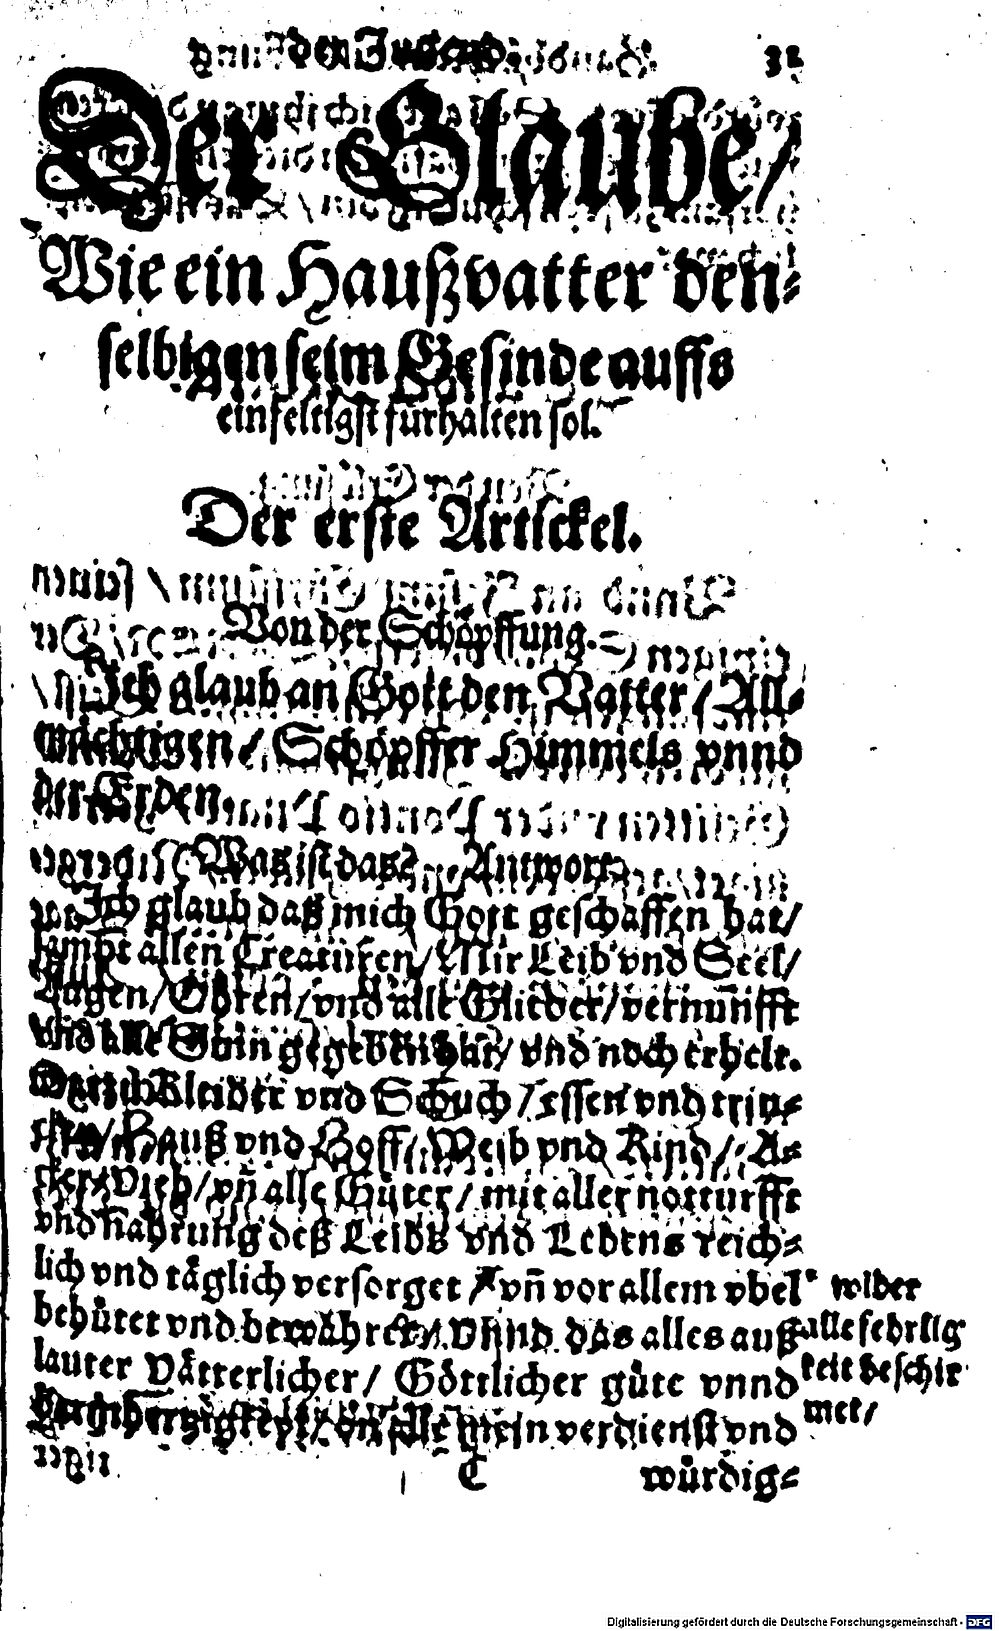 32
Der Glaube/
Wie ein Haußvatter den⸗
selbigen seim Gesinde auffs
einfeltigst fürhalten sol.
Der erste Artickel.
Von der Schöpffung.
Ich glaub an Gott den Vatter / All⸗
mächtigen / Schöpffer Himmels vnnd
der Erden.
Was ist das? Antwort.
Ich glaub daß mich Gott geschaffen hat/
sampt allen Creaturen/ Mir Leib vnd Seel/
Augen/ Ohren/ vnd alle Glieder/ vernunfft
vnd alle Sinn gegeben hat/ vnd noch erhelt.
Kleider vnd Schuch / essen vnd trin⸗
cken/ Hauß vnd Hoff/ Weib vnd Kind/ A⸗
cker/ Vieh/ vñ alle Güter/ mit aller notturfft
vnd nahrung deß Leibs vnd Lebens reich⸗
lich vnd täglich versorget / vñ vor allem vbel
behütet vnd bewähret/ Vnnd das alles auß
lauter Vätterlicher/ Göttlicher güte vnnd
Barmhertzigkeyt/ on alle mein verdienst vnd
C würdig⸗
* wider
alle fehrlig
keit beschir
met/
Digitalisierung gefördert durch die Deutsche Forschungsgemeinschaft - DFG